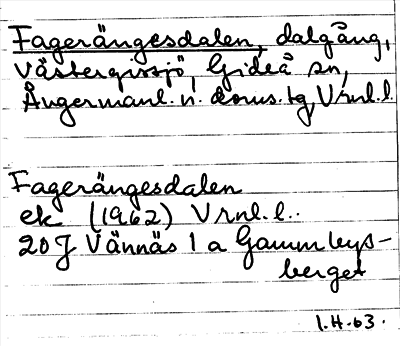 Fagerängesdalen, dalgång,
Västergissjö, Gideå sn,
Ångermanl. n. doms. tg, Vrnl. l.
Fagerängesdalen
ek (1962) Vrnl. l.
20 J Vännäs 1 a Gammbys-
berget
1.H.63.